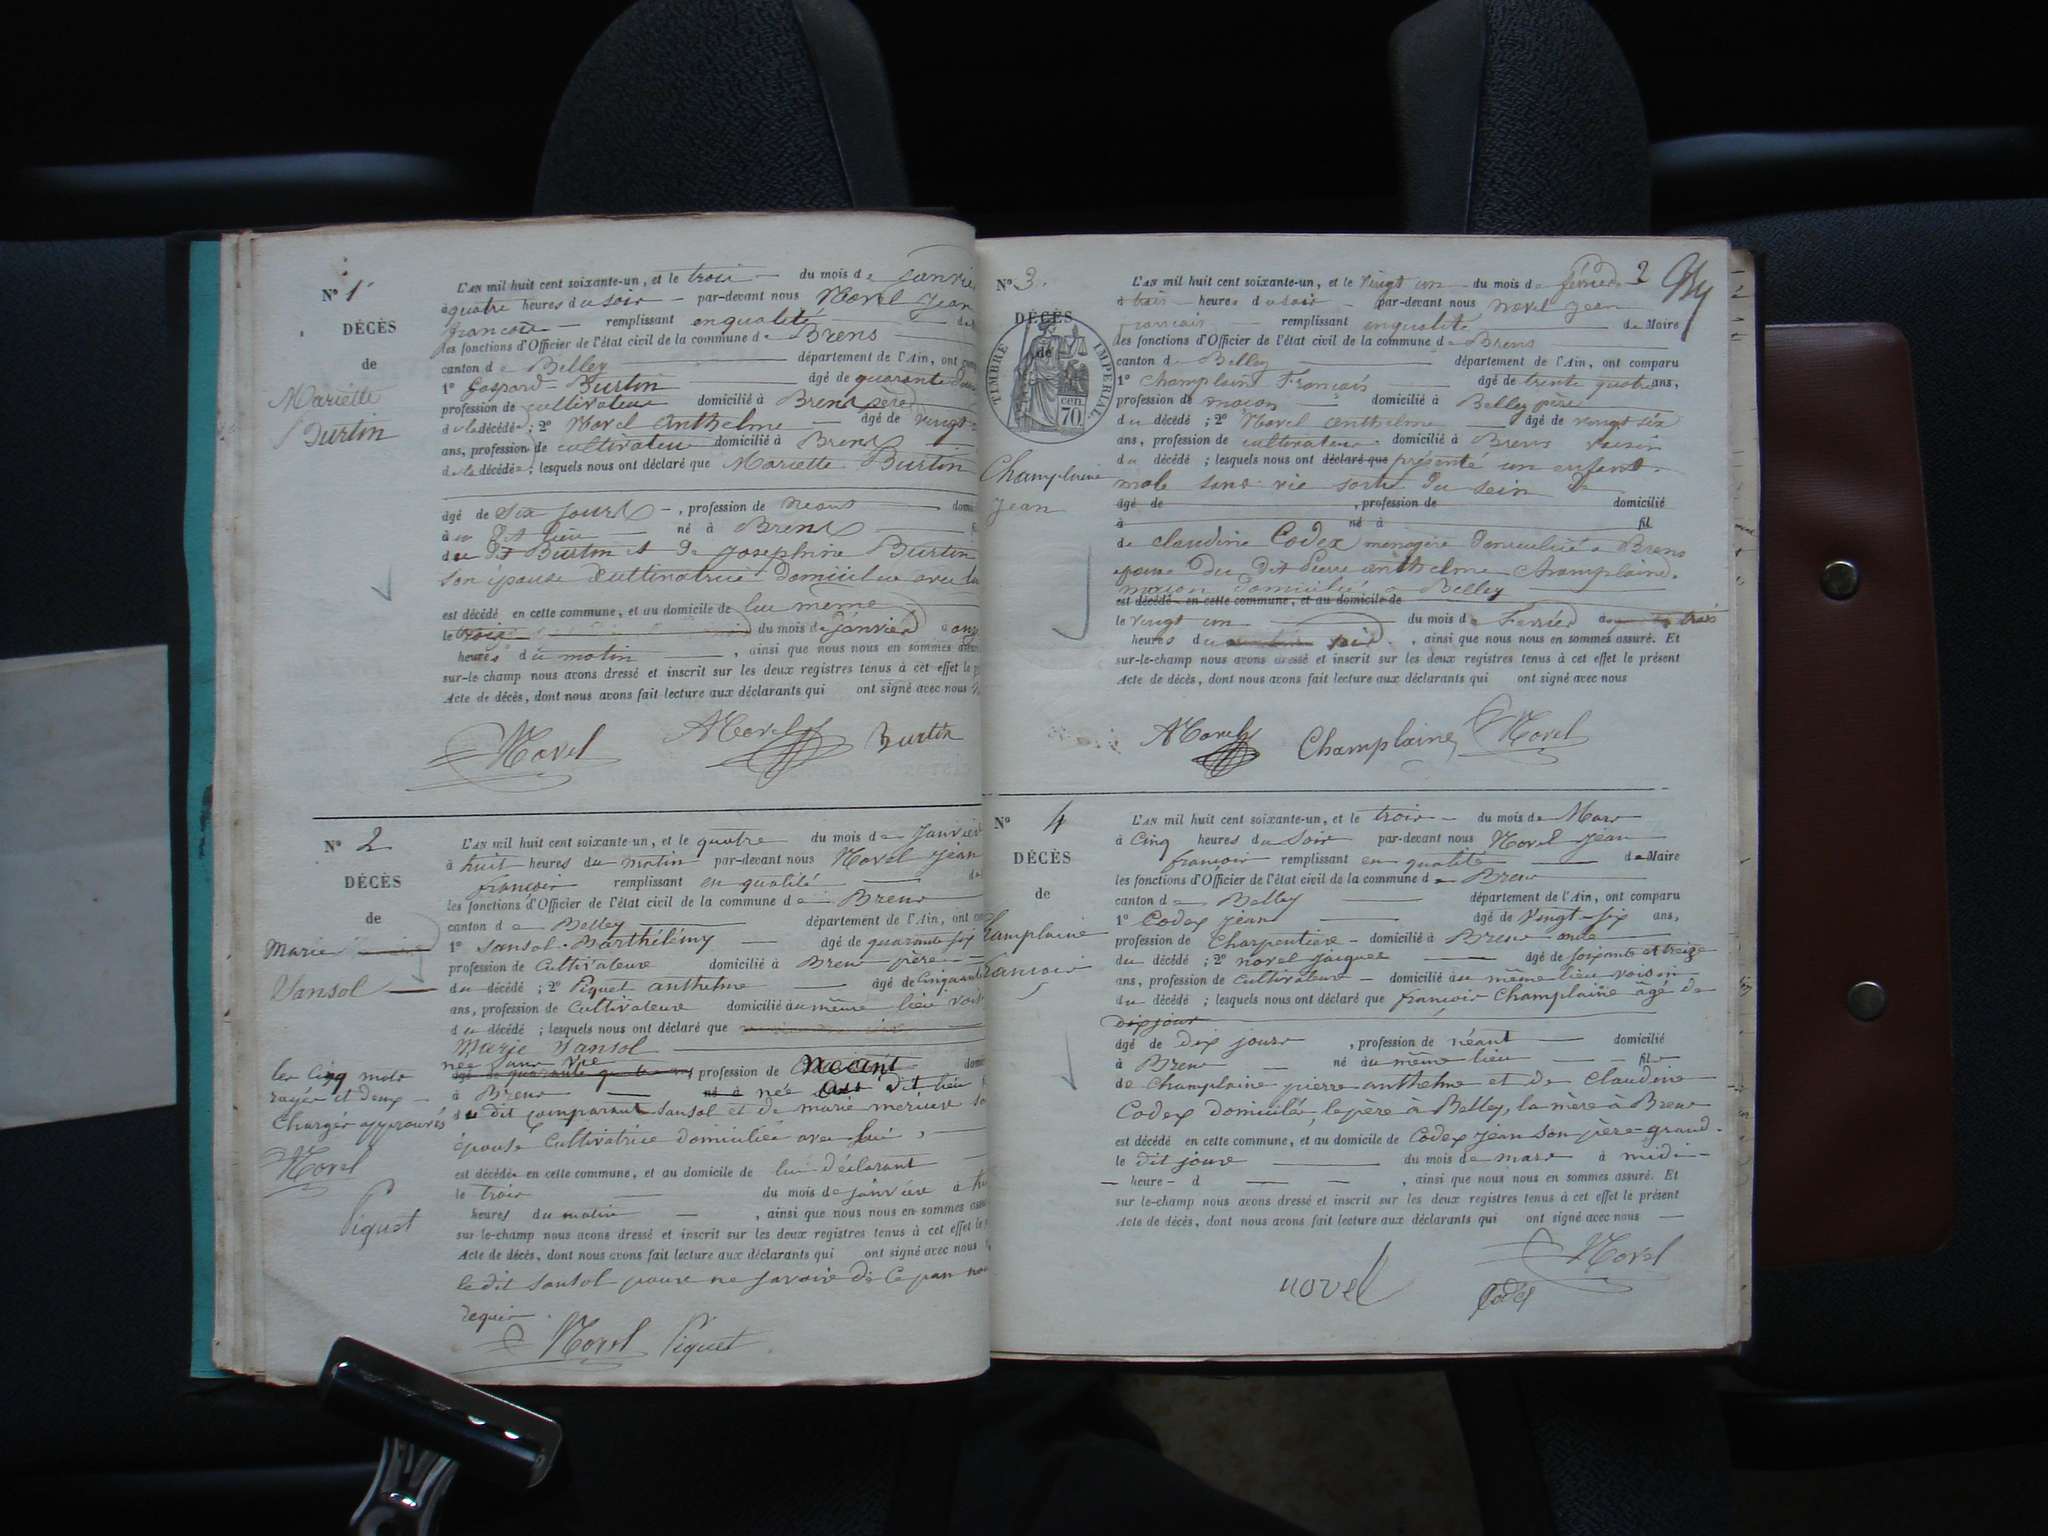 N° 1
DÉCÈS
de
Mariette
Burtin
L'AN mil huit cent soixante-un, et le trois du mois de Janvie
à quatre heures du soir par-devant nous Novel Jean
françois remplissant en qualité de
les fonctions d'Officier de l'état civil de la commune de Brens
canton de Belley département de l'Ain, ont
1° Gaspard Burtin âgé de quarante
profession de cultivateur domicilié à Brens père
de la décédée ; 2° Novel Anthelme âgé de vingt
ans, profession de cultivateur domicilié à Brens
de la décédée ; lesquels nous ont déclaré que Mariette Burtin
âgé de six jours, profession de néant
au dit lieu né à Brens
du dt Burtin et de Josephine Burtin
son épouse Cultivatrice domiciliée avec lui
est décédé en cette commune, et au domicile de lui même
le trois du mois de janvier à onz
heures du matin, ainsi que nous nous en sommes assu
sur-le champ nous avons dressé et inscrit sur les deux registres tenus à cet effet le p
Acte de décès, dont nous avons fait lecture aux déclarants qui ont signé avec nous
Novel ANovel Burtin
N° 2
DÉCÈS
de
Marie
Sansol
L'AN mil huit cent soixante-un, et le quatre du mois de Janvier
à huit heures du matin par-devant nous Novel Jean
françois remplissant en qualité de
les fonctions d'Officier de l'état civil de la commune de Brens
canton de Belley département de l'Ain, ont co
1° Sansol Barthélémy âgé de quarante six
profession de Cultivateur domicilié à Brens père
du décédé ; 2° Piquet anthelme âgé de Cinquante
ans, profession de Cultivateur domicilié au même lieu voisi
du décédé ; lesquels nous ont déclaré que
Marie Sansol
née sans vie
profession de néant domi
à Brens née au dit lieu
du dit comparant Sansol et de marie merieux so
épouse Cultivatrice domiciliée avec lui,
est décédée en cette commune, et au domicile de lui déclarant
le trois du mois de janvier à
heures du matin, ainsi que nous nous en sommes assu
sur-le-champ nous avons dressé et inscrit sur les deux registres tenus à cet effet le
Acte de décès, dont nous avons fait lecture aux déclarants qui ont signé avec nous
le dit Sansol pour ne savoir de ce par nou
requis.
Novel Piquet
les cinq mots
rayés et deux
Chargés approuvés
Novel
Piquet
2
N° 3.
DÉCÈS
de
TIMBRE IMPERIAL
70 cen
Champlaine
Jean
L'AN mil huit cent soixante-un, et le vingt un du mois de février
à trois heures du soir par-devant nous Novel Jean
francois remplissant en qualité de Maire
les fonctions d'Officier de l'état civil de la commune de Brens
canton de Belley département de l'Ain, ont comparu
1° Champlaine François âgé de trente quatre ans,
profession de maçon domicilié à Belley père
du décédé ; 2° Novel Anthelme âgé de vingt six
ans, profession de cultivateur domicilié à Brens voisin
du décédé ; lesquels nous ont déclaré que présenté un enfant
mâle sans vie sorti du sein de
âgé de, profession de domicilié
à né à fil
de claudine Codex menagère domiciliée à Brens
epouse du dit Pierre anthelme Champlaine
maçon domicilié à Belley
est décédé en cette commune, et au domicile de
le vingt un du mois de Fevrier à trois
heures du soir, ainsi que nous nous en sommes assuré. Et
sur-le-champ nous avons dressé et inscrit sur les deux registres tenus à cet effet le présent
Acte de décès, dont nous avons fait lecture aux déclarants qui ont signé avec nous
ANovel Champlaine Novel
N° 4
DÉCÈS
de
Champlaine
francois
L'AN mil huit cent soixante-un, et le trois du mois de Mars
à Cinq heures du Soir par-devant nous Novel Jean
françois remplissant en qualité de Maire
les fonctions d'Officier de l'état civil de la commune de Brens
canton de Belley département de l'Ain, ont comparu
1° Codex jean âgé de vingt-six ans,
profession de Charpentier domicilié à Brens oncle
du décédé ; 2° novel jacques âgé de soixante et treize
ans, profession de Cultivateur domicilié au même lieu voisin
du décédé ; lesquels nous ont déclaré que françois Champlaine âgé de
dix jour
âgé de dix jours, profession de néant domicilié
à Brens né au même lieu fils
de Champlaine pierre anthelme et de Claudine
Codex domiciliés, le père à Belley, la mère à Brens
est décédé en cette commune, et au domicile de Codex jean son père-grand.
le dit jour du mois de mars à midi
heure d, ainsi que nous nous en sommes assuré. Et
sur-le-champ nous avons dressé et inscrit sur les deux registres tenus à cet effet le présent
Acte de décès, dont nous avons fait lecture aux déclarants qui ont signé avec nous
Novel
novel Codex